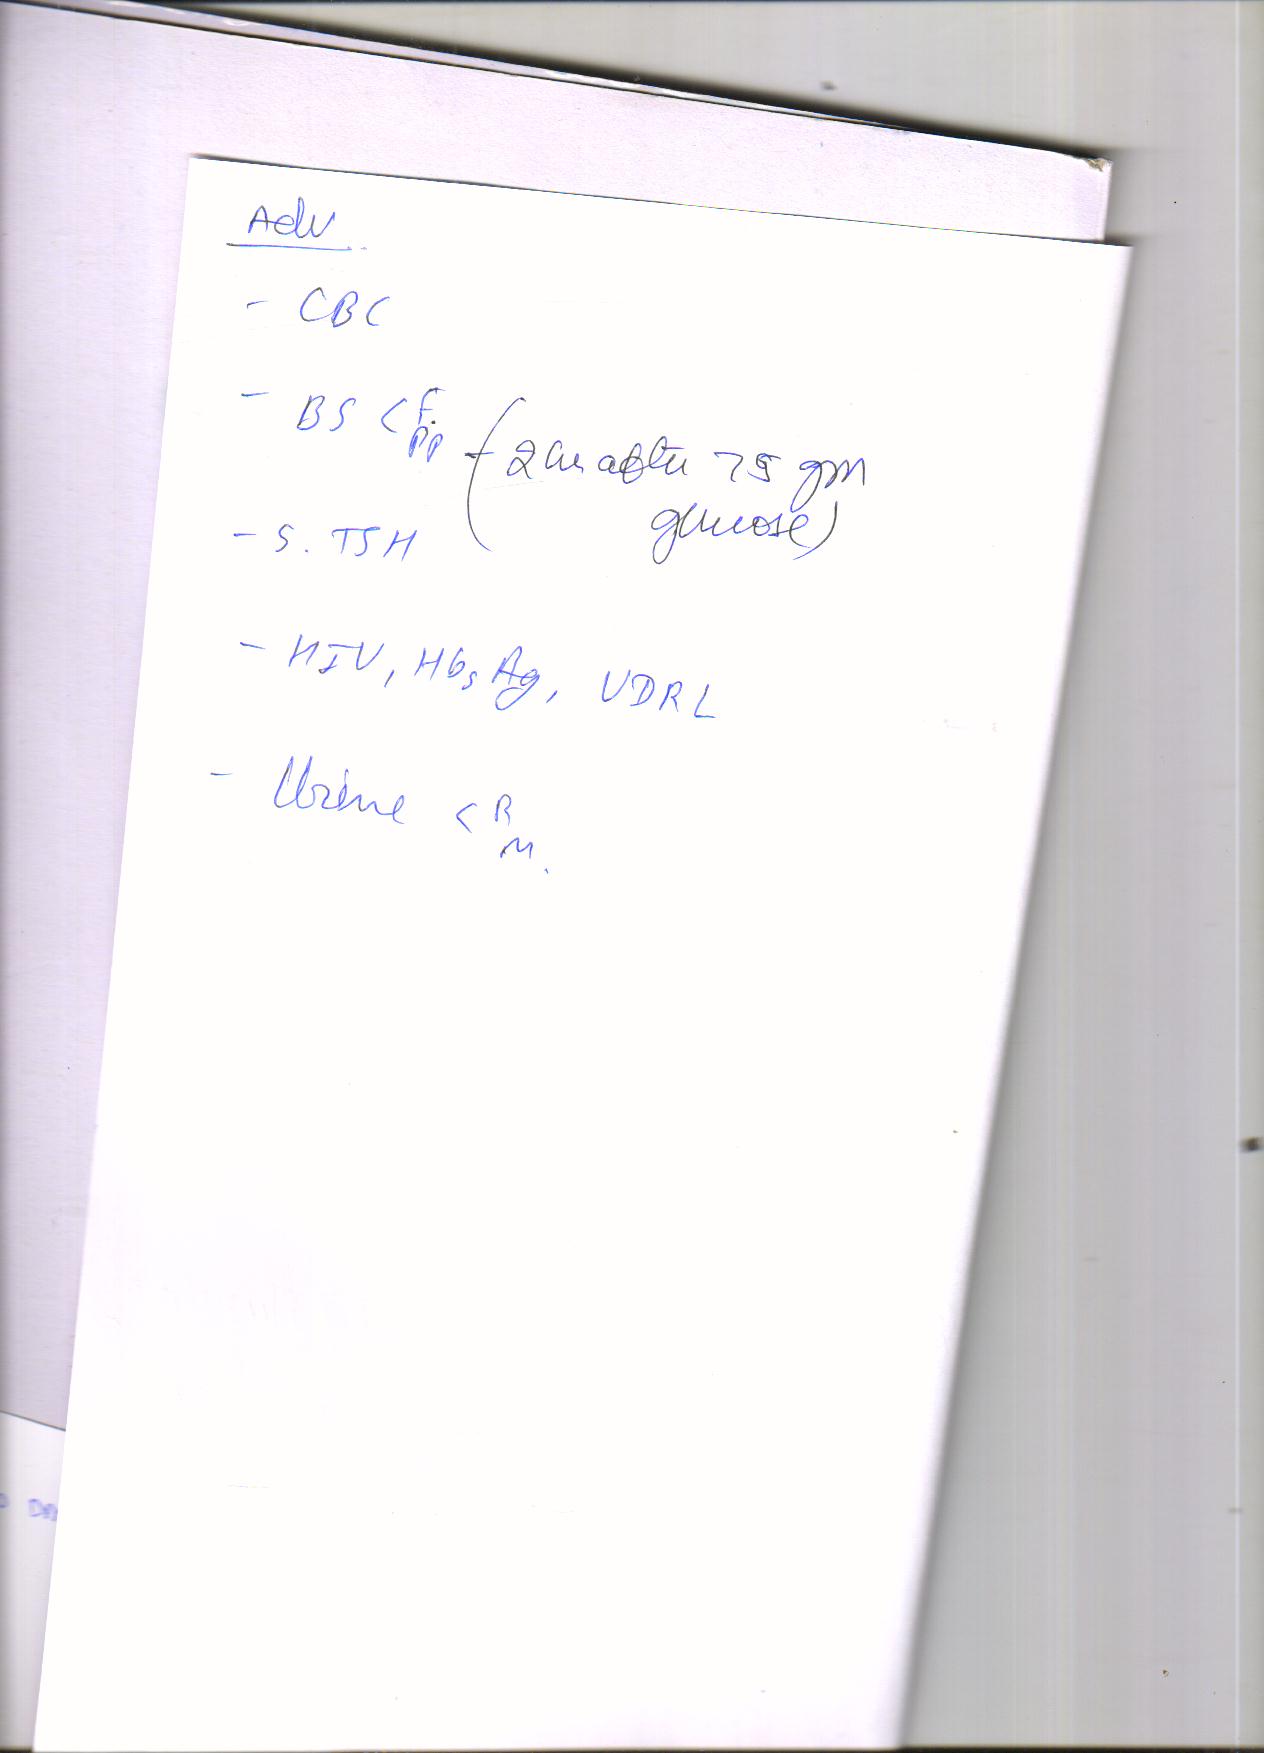 Adv
- CBC
- BS < F.
PP (2 hr after 75 gm
glucose)
- S. TSH
- HIV, HbsAg, VDRL
- Urine < R
M.